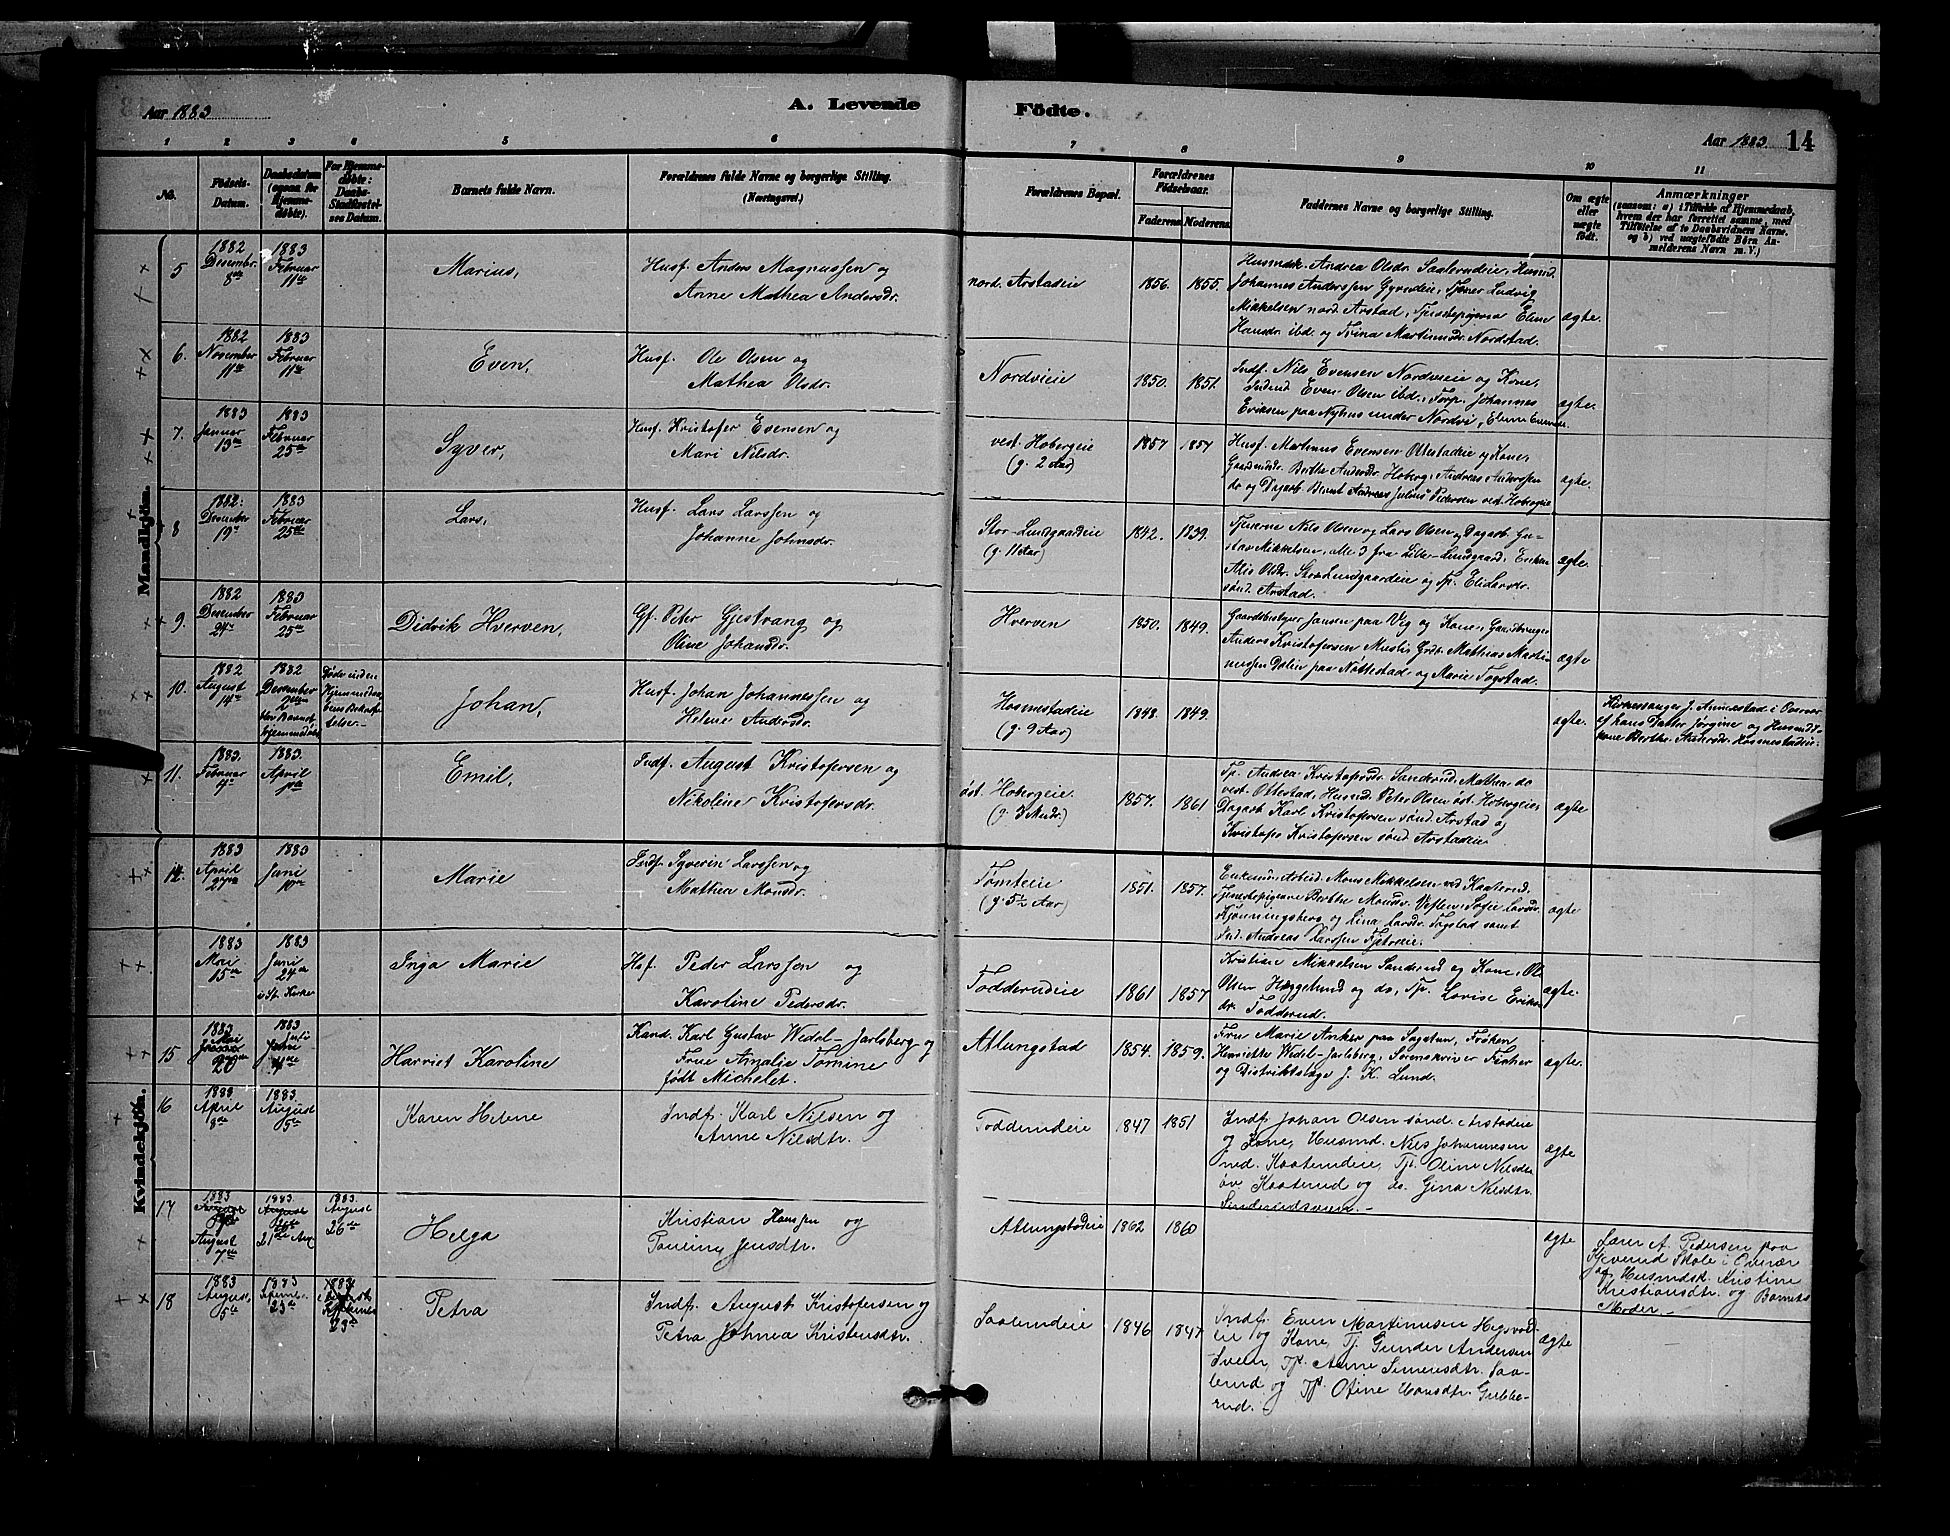 Aar 1883
A. Levende Födte.
Aar 1883. 14
1 2 3 4 5 6 7 8 9 10 11
No.
Födsels-Datum.
Daabsdatum (ogsaa for Hjemmedöbte).
For Hjemmedöbte: Daabs-Stadfæstelses Datum.
Barnets fulde Navn.
Forældrenes fulde Navne og borgerlige Stilling. (Næringsvei.)
Forældrenes Bopæl.
Forældrenes Födselsaar.
Faderens Moderens
Faddernes Navne og borgerlige Stilling.
Om ægte eller uægte födt.
Anmærkninger
(saasom: a) i Tilfælde af Hjemmedaab, hvem der har forrettet samme, med Tilföielse af to Daabsvidners Navne. og b) ved uægtefödte Börn Anmelderens Navn m. V.)
Mandkjön.
5 1882 Desember 8de 1883 Februar 11te Marius,
Husf. Anders Magnussen og
Anne Mathea Andersdr.
nord. Arstadeie 1856. 1855.
Husmdsk. Andrea Olsdr. Saalerudeie, Husmd.
Johannes Anderssen Gyrudeie, Tjener Ludvig
Mikkelsen nord. Arstad, Tjenestepigerne Eline
Hansdr. ibd. og Trina Martinusdr. Nordstad.
ægte.
6. 1882 November 11te 1883 Februar 11te Even,
Husf. Ole Olsen og
Mathea Olsdr.
Nordvieie 1850. 1851.
Indf. Nils Evensen Nordvieie og Kone,
Even Olsen ibd., Torp. Johannes
Eriksen paa Nyhus under Nordvi,
ægte.
7. 1883 Januar 13de 1883 Februar 25de Syver,
Husf. Kristofer Evensen og
Mari Nilsdr.
vest. Hobergeie (g. 2 Aar) 1857 1857
Husf. Martinus Evensen Ottestadeie og Kone,
Gaardmdsdr. Berthe Andersdr. Hoberg, Andreas Anderssen
do og Dagarb. Bernt Andreas Julius Pedersen ved. Hobergeie
ægte.
8 1882. Desember 19de 1883 Februar 25de Lars,
Husf. Lars Larssen og
Johanne Johnsdr.
Stor-Lundgaardeie (g. 11 Aar) 1842. 1839.
Tjenerne Nils Olsen og Lars Olsen, Dagarb. Gu-
stav Mikkelsen, alle 3 fra Lille-Lundgaard, Enken
Alis Olsdr. Store Lundgaardeie og Tp. Eli Larsdr.
sönd. Arstad.
ægte.
9. 1882 Desember 24de 1883 Februar 25de Didvik Hverven,
Gf. Peter Gjestvang og
Oline Johansdr.
Hverven 1850. 1849.
Gaardbestyrer Jansen paa Vig og Kone, Gaardbruger
Anders Kristofersen Musli, Grdr. Mathias Marti-
nussen Dalin paa Nøttestad og Marie Fogstad.
ægte
10. 1882 August 14de 1882 Desember
blev Barnet hjemmedöbt
Döde uden Hjemmedaabens Bekræftelse.
Johan,
Husf. Johan Johannessen og
Helene Andersdr.
Hosmestadeie (g. 9 Aar) 1848. 1849. ægte.
Kirkesanger J. Annæstad i Overvær
af hans Datter Jörgine og Husmds-
kone Berthe Andersdr. Hosmestadeie.
11. 1883. Februar 9de 1883. April 1ste Emil,
Indf. August Kristofersen og
Nikoline Kristofersdr.
öst. Hobergeie. (g. 3 Mndr.) 1857. 1861
Tp. Andrea Kristofersdr. Sanderud, Mathea do
vest. Ottestad, Husmd. Peter Olsen öst. Hobergeie,
Dagarb. Karl Kristofersen sönd. Arstad og
Kristofer Kristofersen sönd. Arstadeie
ægte
Kvindekjön.
14. 1883 April 27de 1883 Juni Marie
Indf. Syverin Larssen og
Mathea Monsdr.
Tomteie (g. 5½ Aar) 1851. 1857.
Mons Mikkelsen ved Kaaterud,
Tjenestepigerne Berthe Monsdr. Veflen, Sofie Larsdr.
Kjönningsberg og Lina Larsdr. Fogstad samt
Ind. Andreas Larssen Fjetreeie.
ægte
1883 Mai 15de 1883 Juni 24de i St. Kirken Inga Marie
Hsf. Peder Larssen og
Karoline Pedersdr.
Todderudeie 1861 1857
Kristian Mikkelsen Sanderud og Kone, Ole
Olsen Hæggelund og do, Tp. Lovise Eriks-
dr. Todderud.
ægte.
15 1883 Mai 20 1883 Juli Harriet Karoline
Kand. Karl Gustav Wedel-Jarlsberg og
Frue Amalie Tomine
födt Michelet.
Atlungstad 1854. 1859.
Frue Marie Anker paa Sagstuen, Fröken
Henriette Wedel-Jarlsberg, Sorenskriver Finher
og Distriktslæge J. K. Lund.
ægte.
16 1883 April 8de 1883. August 5te Karen Helene
Indf. Karl Nilsen og
Anne Nilsdtr.
Todderudeie 1847 1851
Indf. Johan Olsen sönd. Arstadeie
og Kone, Husmd. Nils Johannesen
ned. Kaaterudeie, Tp. Oline Nilsdtr
öv. Kaaterud og do. Gina Nilsdtr.
ægte
17 1883 August 7de 1883. August 21de Aug. 1883. August 26de Helga
Kristian Hansen og
Pauline Jensdtr.
Atlungstadeie 1862 1860 ægte
Lærer A. Pedersen paa
Gjeverud Skole i Overvær
af Husmdsk. Kristine
Kristiansdtr. og Barnets
Moder.
18 1883 August 5te 1883 Septemb. 23de Petra
Indf. August Kristofersen og
Petra Johnea Kristensdtr.
Saalerudeie 1846 1847
Indf. Even Martinusen Hegsvold-
eie og Kone, Tj. Gunder Andersen
Sveen, Tp. Anne Simensdtr. Saa-
lerud og Tp. Oline Hansdtr. Gubbe-
rud.
ægte